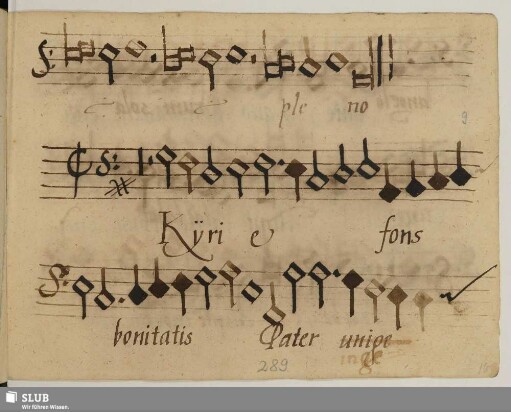 ple no
9
Kÿri e fons
bonitatis Pater unige
inge
289
SLUB
Wir führen Wissen.